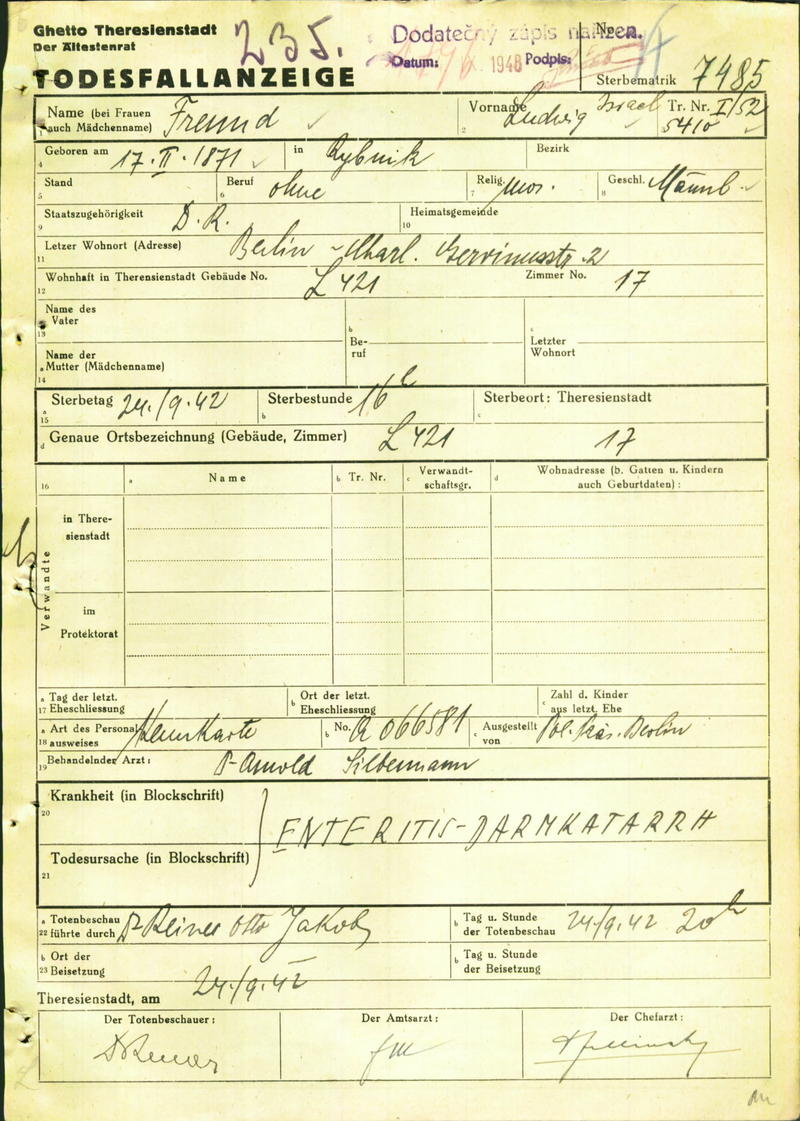 Ghetto Theresienstadt
Der Ältestenrat
235.
Dodatečný zápis nařízen.
No.
Datum: 1948 Podpis:
TODESFALLANZEIGE
Sterbematrik 7485
Name (bei Frauen auch Mädchenname) Freund
Vorname Ludwig Israel
Tr. Nr. I/52
5410
1 2
Geboren am 17. II. 1871 in Rybnik Bezirk
4
Stand Beruf ohne Relig. mos. Geschl. Männl.
5 6 7 8
Staatszugehörigkeit D. R. Heimatsgemeinde
9 10
Letzer Wohnort (Adresse) Berlin - Charl. Gervinusstr. 2
11
Wohnhaft in Theresienstadt Gebäude No. L 421 Zimmer No. 17
12
Name des Vater
13
b Beruf
c Letzter Wohnort
Name der
a Mutter (Mädchenname)
14
a Sterbetag 24./9.42 b Sterbestunde 16h c Sterbeort: Theresienstadt
15
d Genaue Ortsbezeichnung (Gebäude, Zimmer) L 421 17
16 a Name b Tr. Nr. c Verwandtschaftsgr. d Wohnadresse (b. Gatten u. Kindern auch Geburtdaten):
Verwandte
in Theresienstadt
im Protektorat
a Tag der letzt.
17 Eheschliessung
b Ort der letzt. Eheschliessung
c Zahl d. Kinder aus letzt. Ehe
a Art des Personal-
18 ausweises Kennkarte
b No. A 066581
c Ausgestellt von Pol. Präs. Berlin
19 Behandelnder Arzt: Dr Arnold Silbermann
Krankheit (in Blockschrift)
20
ENTERITIS-DARMKATARRH
Todesursache (in Blockschrift)
21
a Totenbeschau
22 führte durch Dr Reiner Otto Jakob
b Tag u. Stunde der Totenbeschau 24/9.42 20h
b Ort der
23 Beisetzung
b Tag u. Stunde der Beisetzung
Theresienstadt, am 24./9.42
Der Totenbeschauer: Der Amtsarzt: Der Chefarzt:
Dr Reiner